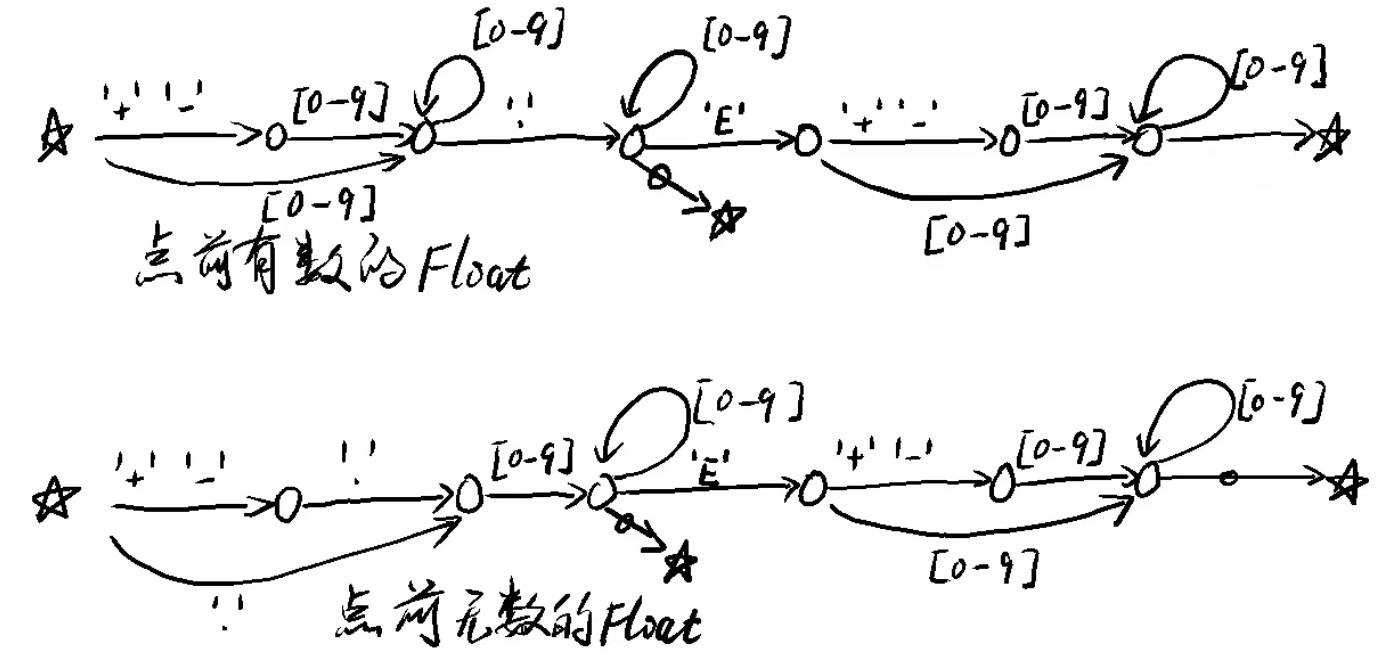 [0-9] [0-9]
'+' '-' [0-9] '.' 'E' '+' '-' [0-9] [0-9]
[0-9] [0-9]
点前有数的Float
[0-9] [0-9]
'+' '-' '.' [0-9] 'E' '+' '-' [0-9]
'.' [0-9]
点前无数的Float